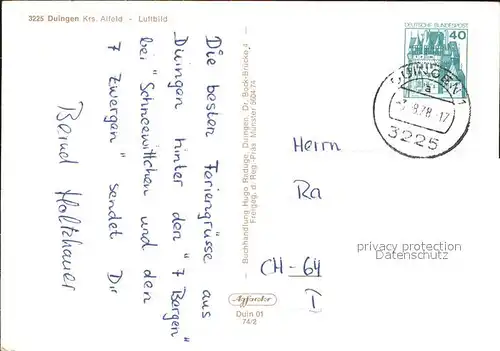 3225 Duingen Krs. Alfeld - Luftbild
Die besten Feriengrüsse aus
Duingen hinter den "7 Bergen"
bei "Schneewittchen und den
7 Zwergen" sendet Dir
Bernd Holtzhauer
Buchhandlung Hugo Raduge, Duingen, Dr. Bock-Brücke 4
Freigeg. d. Reg.-Präs. Münster 5604/74
Agfacolor
Duin 01
74/2
DEUTSCHE BUNDESPOST
40
DUINGEN 1
a
-9.78-17
3225
Herrn
Ra
CH-64
I
privacy protection
Datenschutz